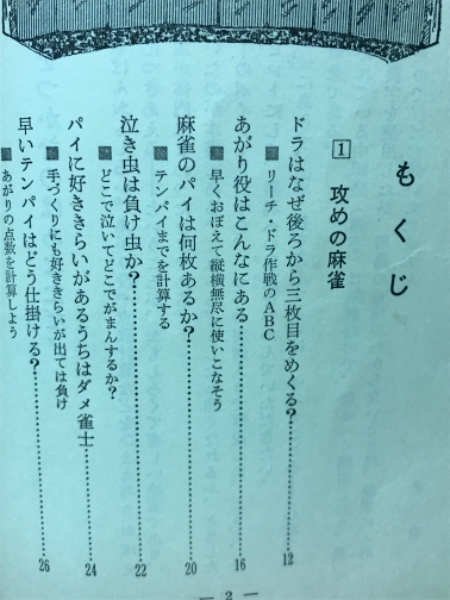 もくじ
1 攻めの麻雀
ドラはなぜ後ろから三枚目をめくる?……12
■リーチ・ドラ作戦のABC
あがり役はこんなにある……16
■早くおぼえて縦横無尽に使いこなそう
麻雀のパイは何枚あるか?……20
■テンパイまでを計算する
泣き虫は負け虫か?……22
■どこで泣いてどこでがまんするか?
パイに好ききらいがあるうちはダメ雀士……24
■手づくりにも好ききらいが出ては負け
早いテンパイはどう仕掛ける?……26
■あがりの点数を計算しよう
— 2 —